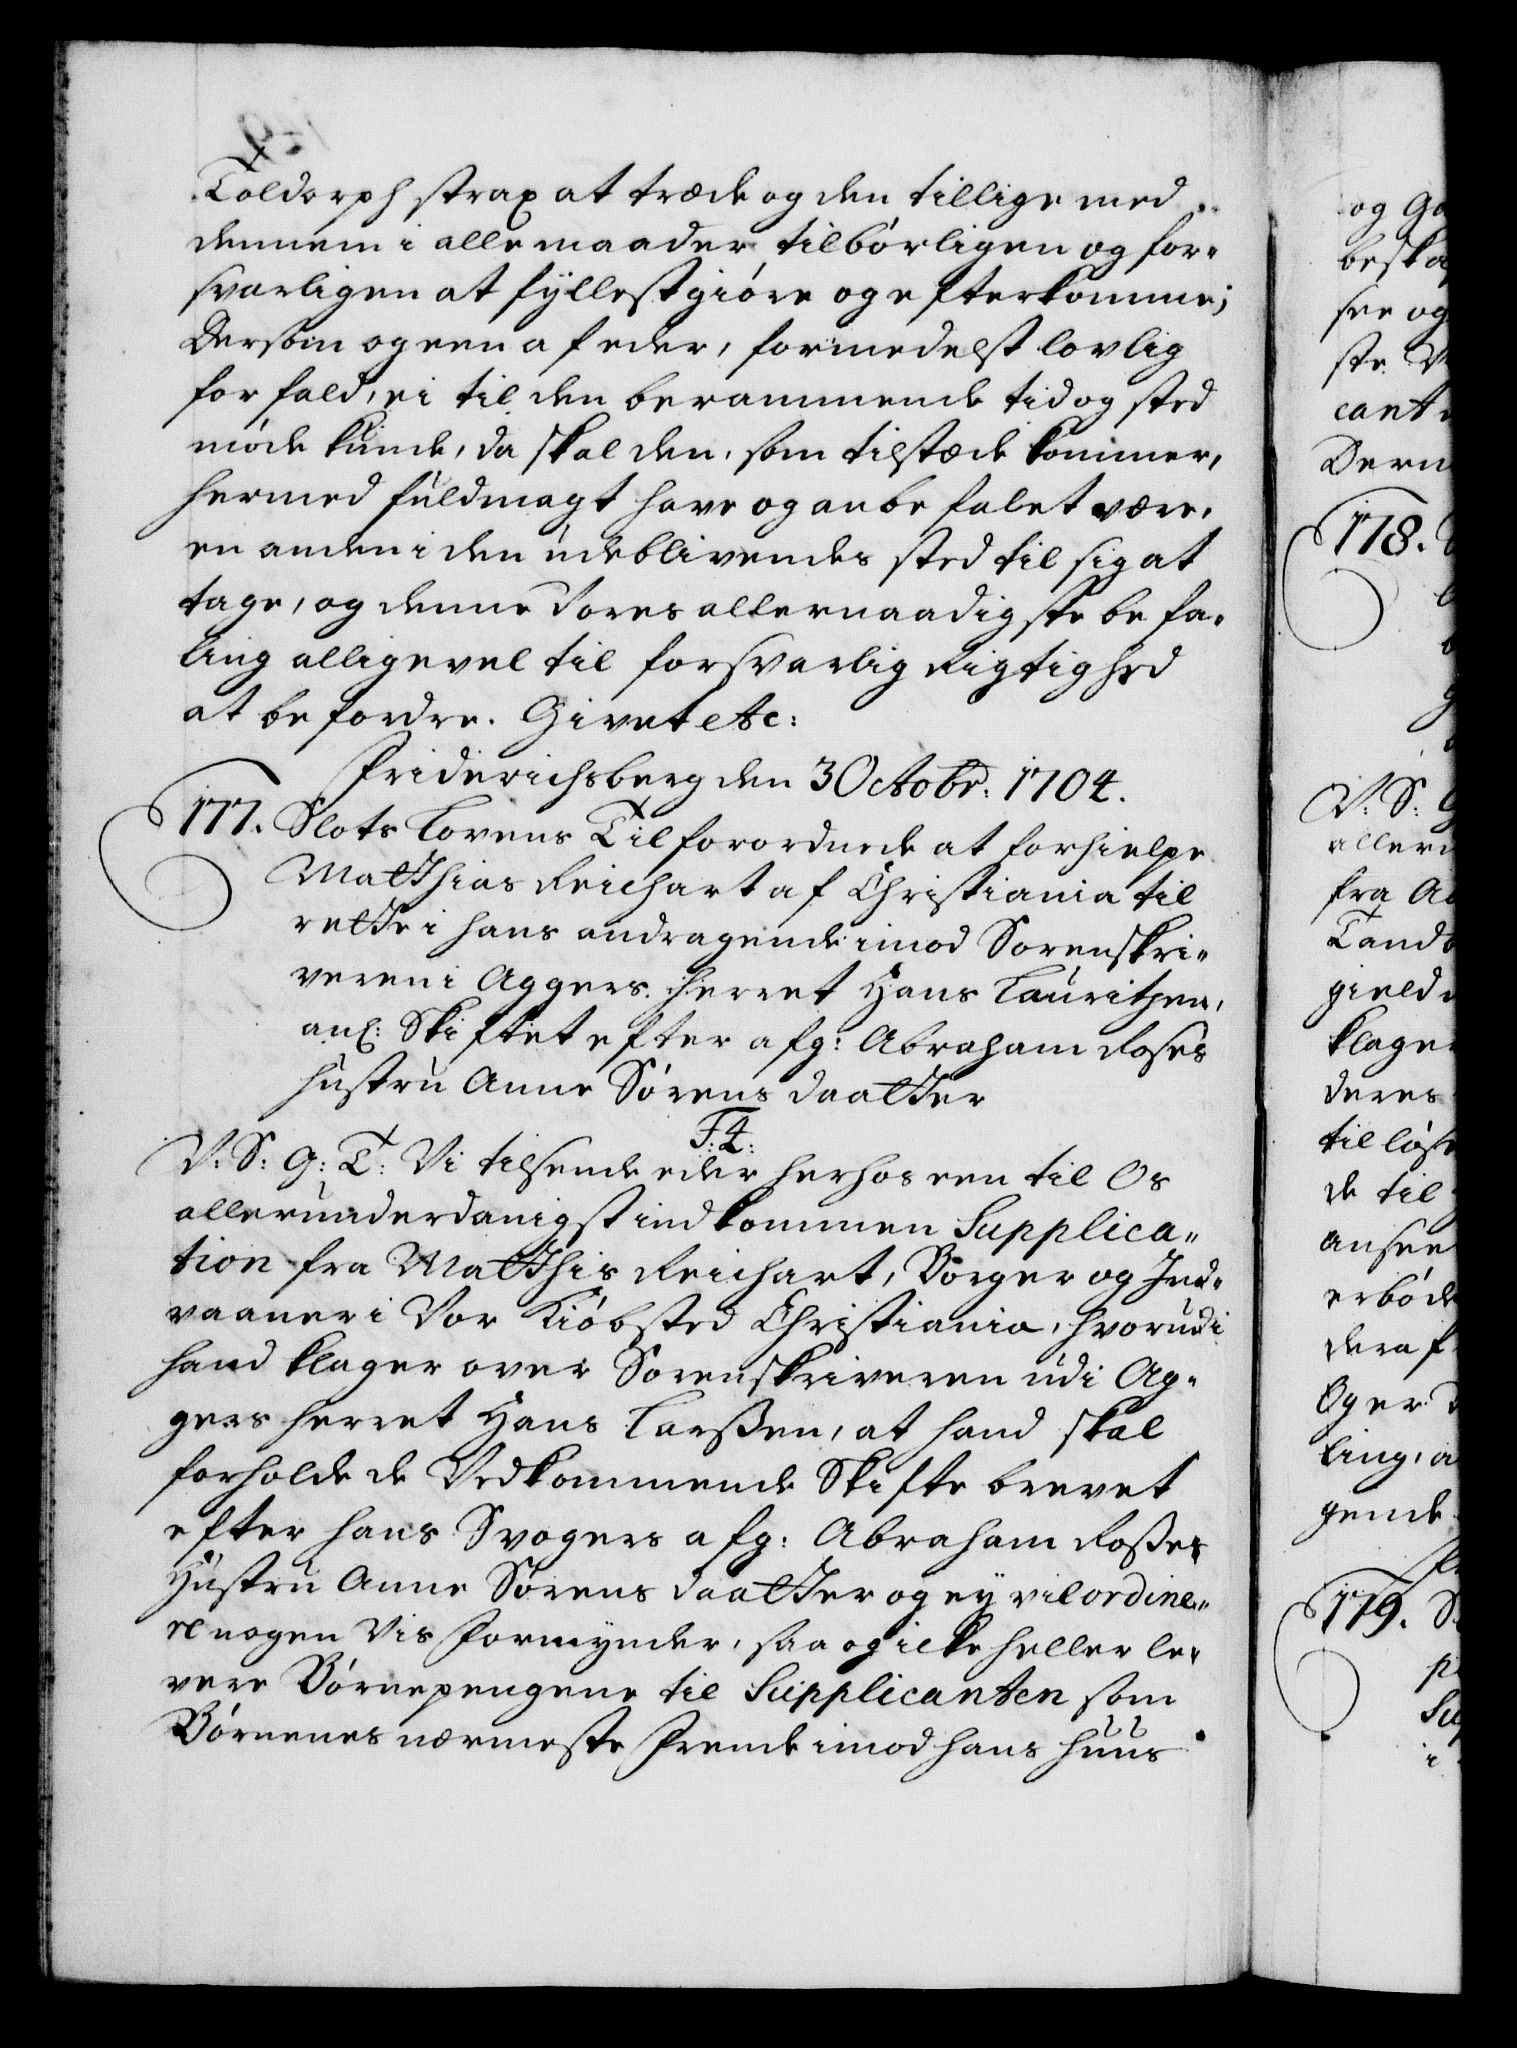 Toldorph strax at træde og den tillige med
dennem i alle maader tilbørligen og for-
svarligen at fyllestgiøre og efterkomme;
Dersom og een af eder, formedelst lovlig
forfald, ei til den berammende tid og sted
møde kunde, da skal den, som tilstæde kommer,
hermed fuldmagt have og anbefalet være,
en anden i den udeblivendes sted til sig at
tage, og denne Vores allernaadigste befa-
ling alligevel til forsvarlig Rigtighed
at befordre. Givet etc:
Friderichsberg den 3 Octobr: 1704.
177. Slots Lovens Tilforordnede at forhielpe
Matthias Reichart af Christiania til
rette i hans andragende imod Sorenskri-
veren i Aggers herret Hans Lauritzen,
anl: Skiftet efter afg: Abraham Roses
hustru Anne Sørens daatter
F: 4:
V: S: G: T: Vi tilsende eder herhos een til Os
allerunderdanigst indkommen Supplica-
tion fra Matthis Reichart, Borger og Ind-
vaaner i Vor Kiøbsted Christiania, hvorudi
hand klager over Sorenskriveren udi Ag-
gers herret Hans Larßen, at hand skal
forholde de Vedkommende Skifte brevet
efter hans Svogers afg: Abraham Roßes
Hustru Anne Sørens daatter og ey vil ordine-
re nogen Vis Formynder, saa og icke heller le-
vere Børnepengene til Supplicanten som
Børnenes nærmeste Frende imod hans huus
og
178.
V: S:
allern
fra
klage
deres
de til
ansee
deraf
Og er
ling, a
gende
179. S